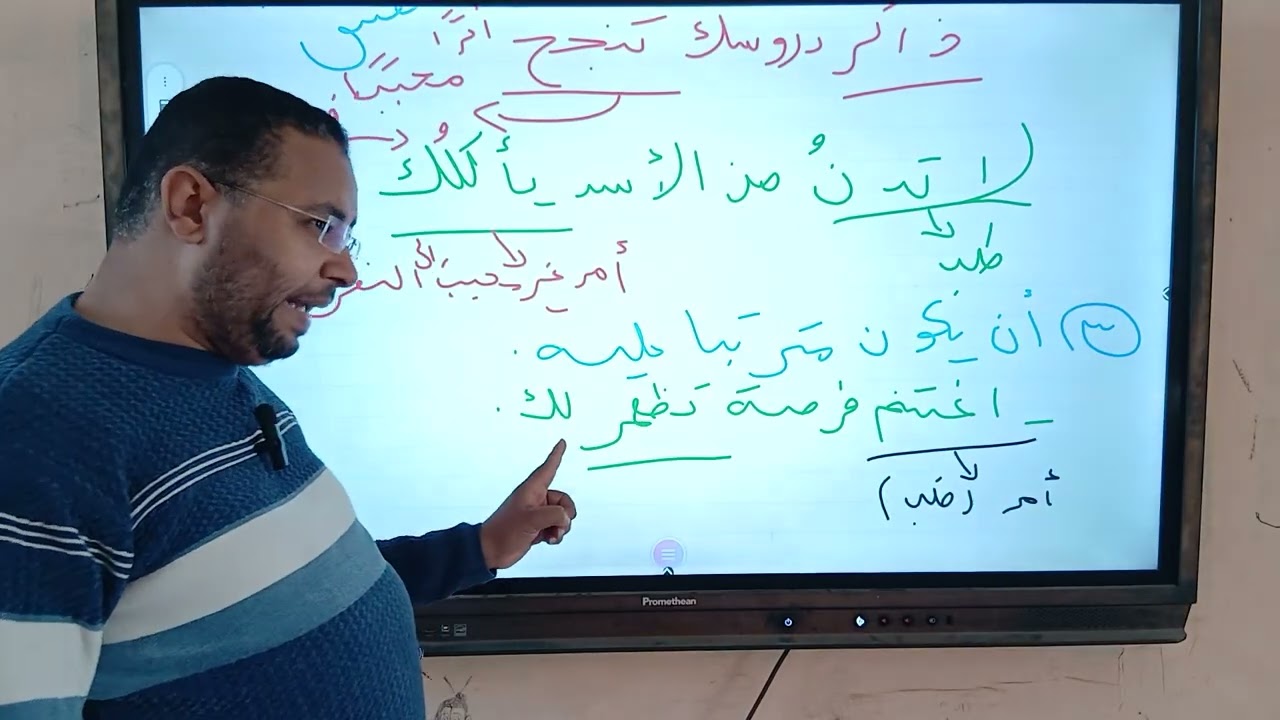 ذاكر دروسك تنجح أثرًا
محببًا
لا تدنُ من الأسد يأكلُك
طلب
أمر غير حبيب إلى النفس
٣ أن يكون مترتبا عليه .
ـ اغتنم فرصة تظهر لك .
أمر (طلب)
Promethean